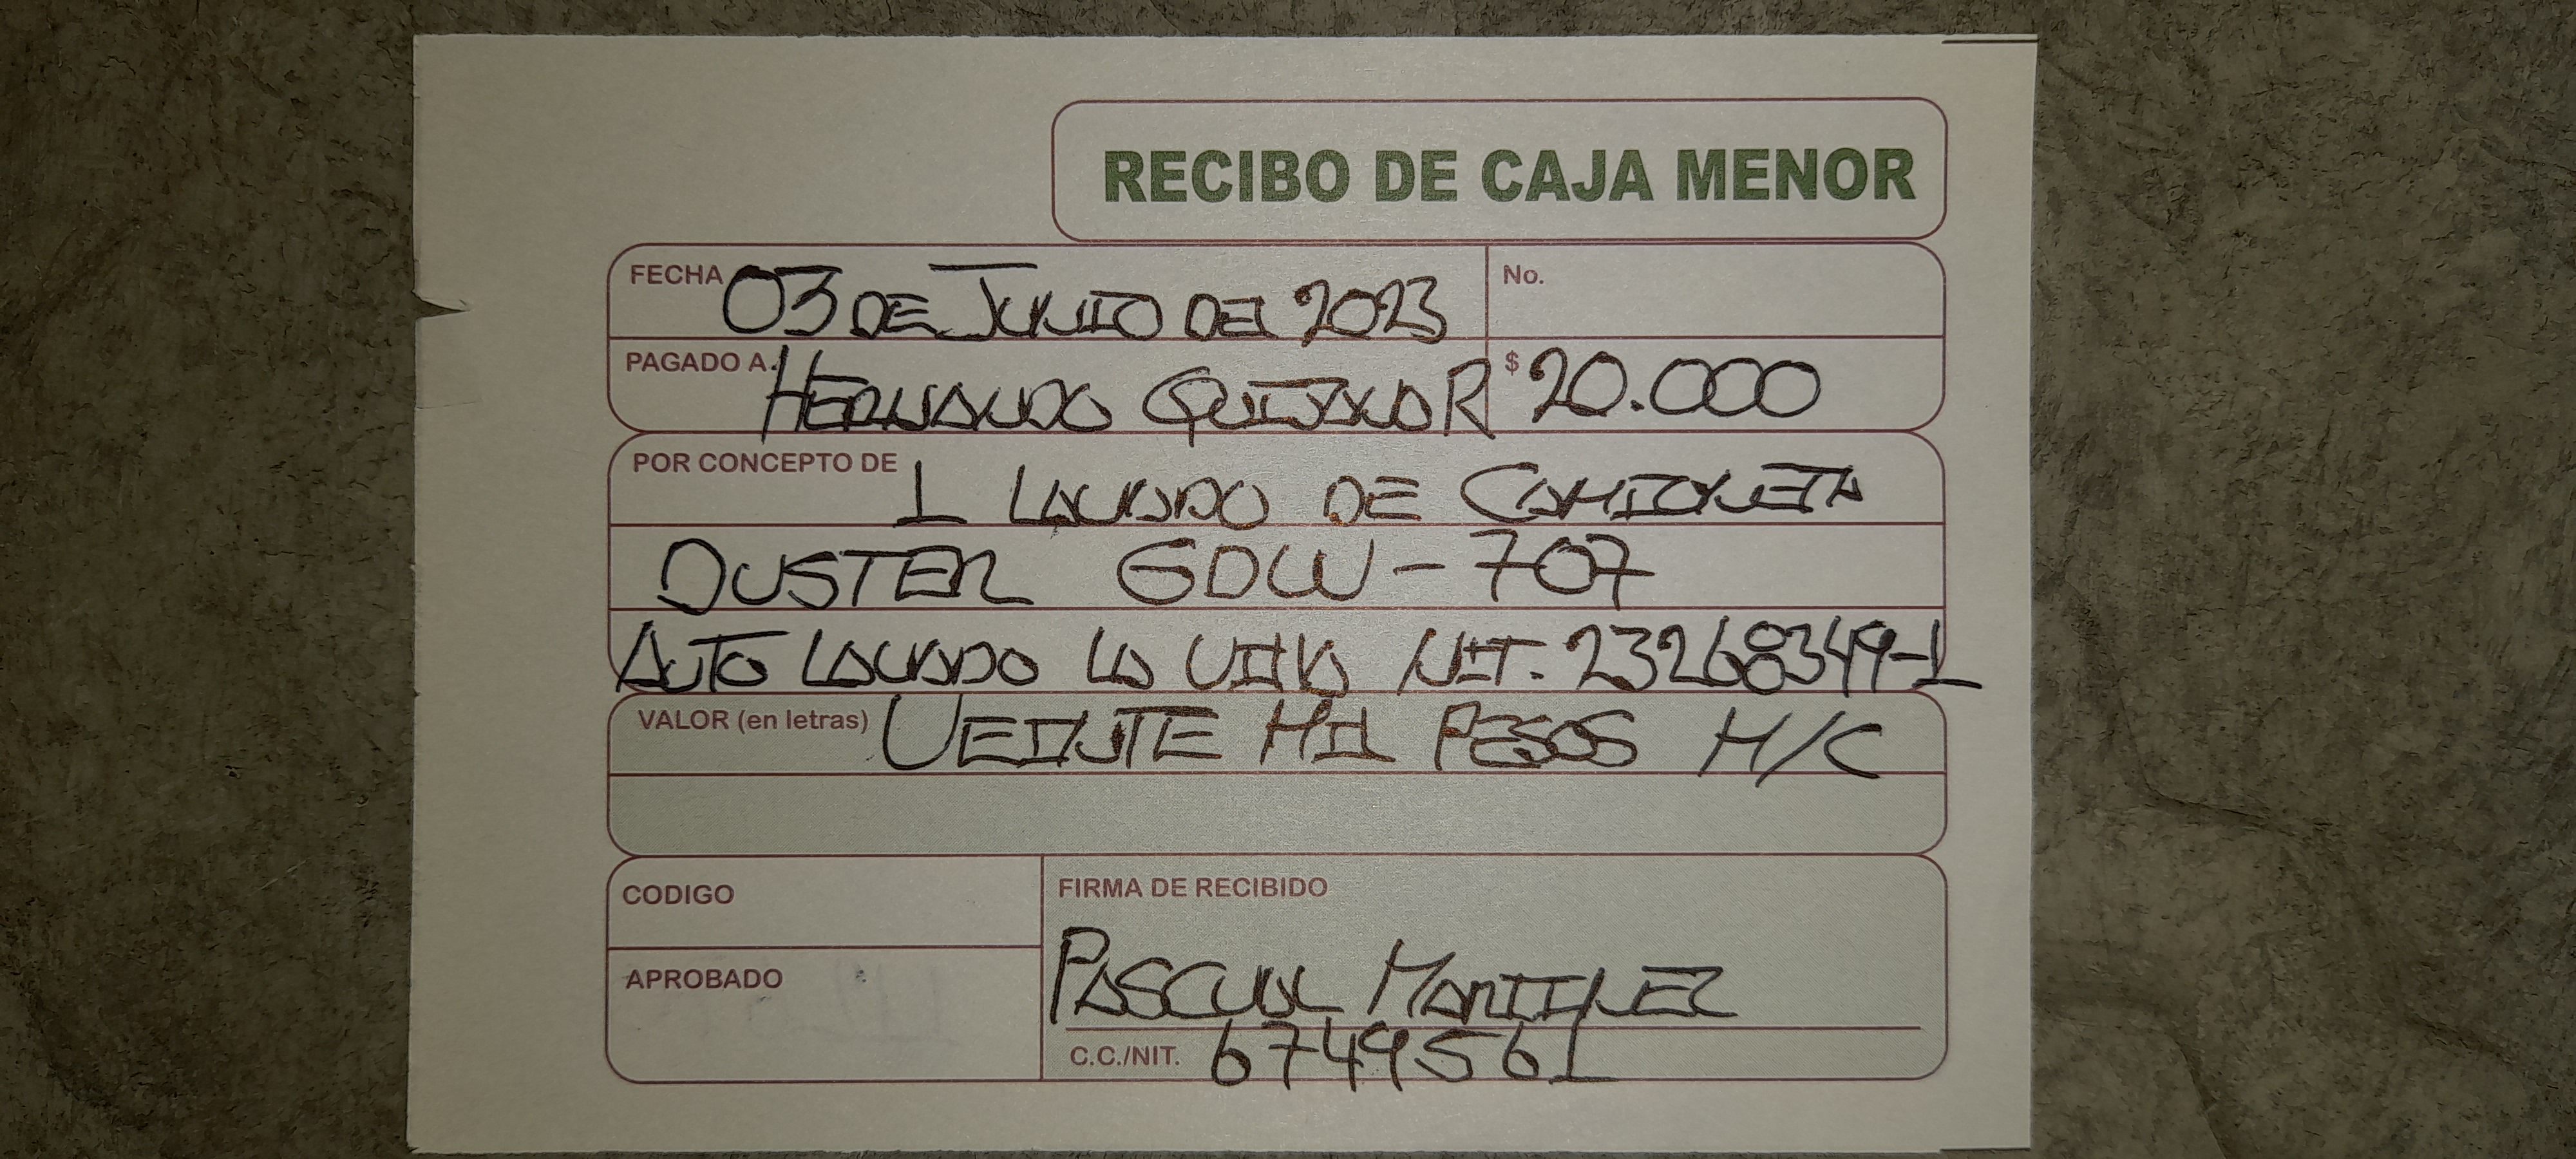 RECIBO DE CAJA MENOR
FECHA 03 DE JUNIO DEL 2023 No.
PAGADO A: HERNANDO QUIJANO R $ 20.000
POR CONCEPTO DE 1 LAVADO DE CAMIONETA
DUSTER GDW-707
AUTO LAVADO LA NIT. 23268349-1
VALOR (en letras) VEINTE MIL PESOS M/C
CODIGO
FIRMA DE RECIBIDO
APROBADO
PASCUAL MARTINEZ
C.C./NIT. 6749561